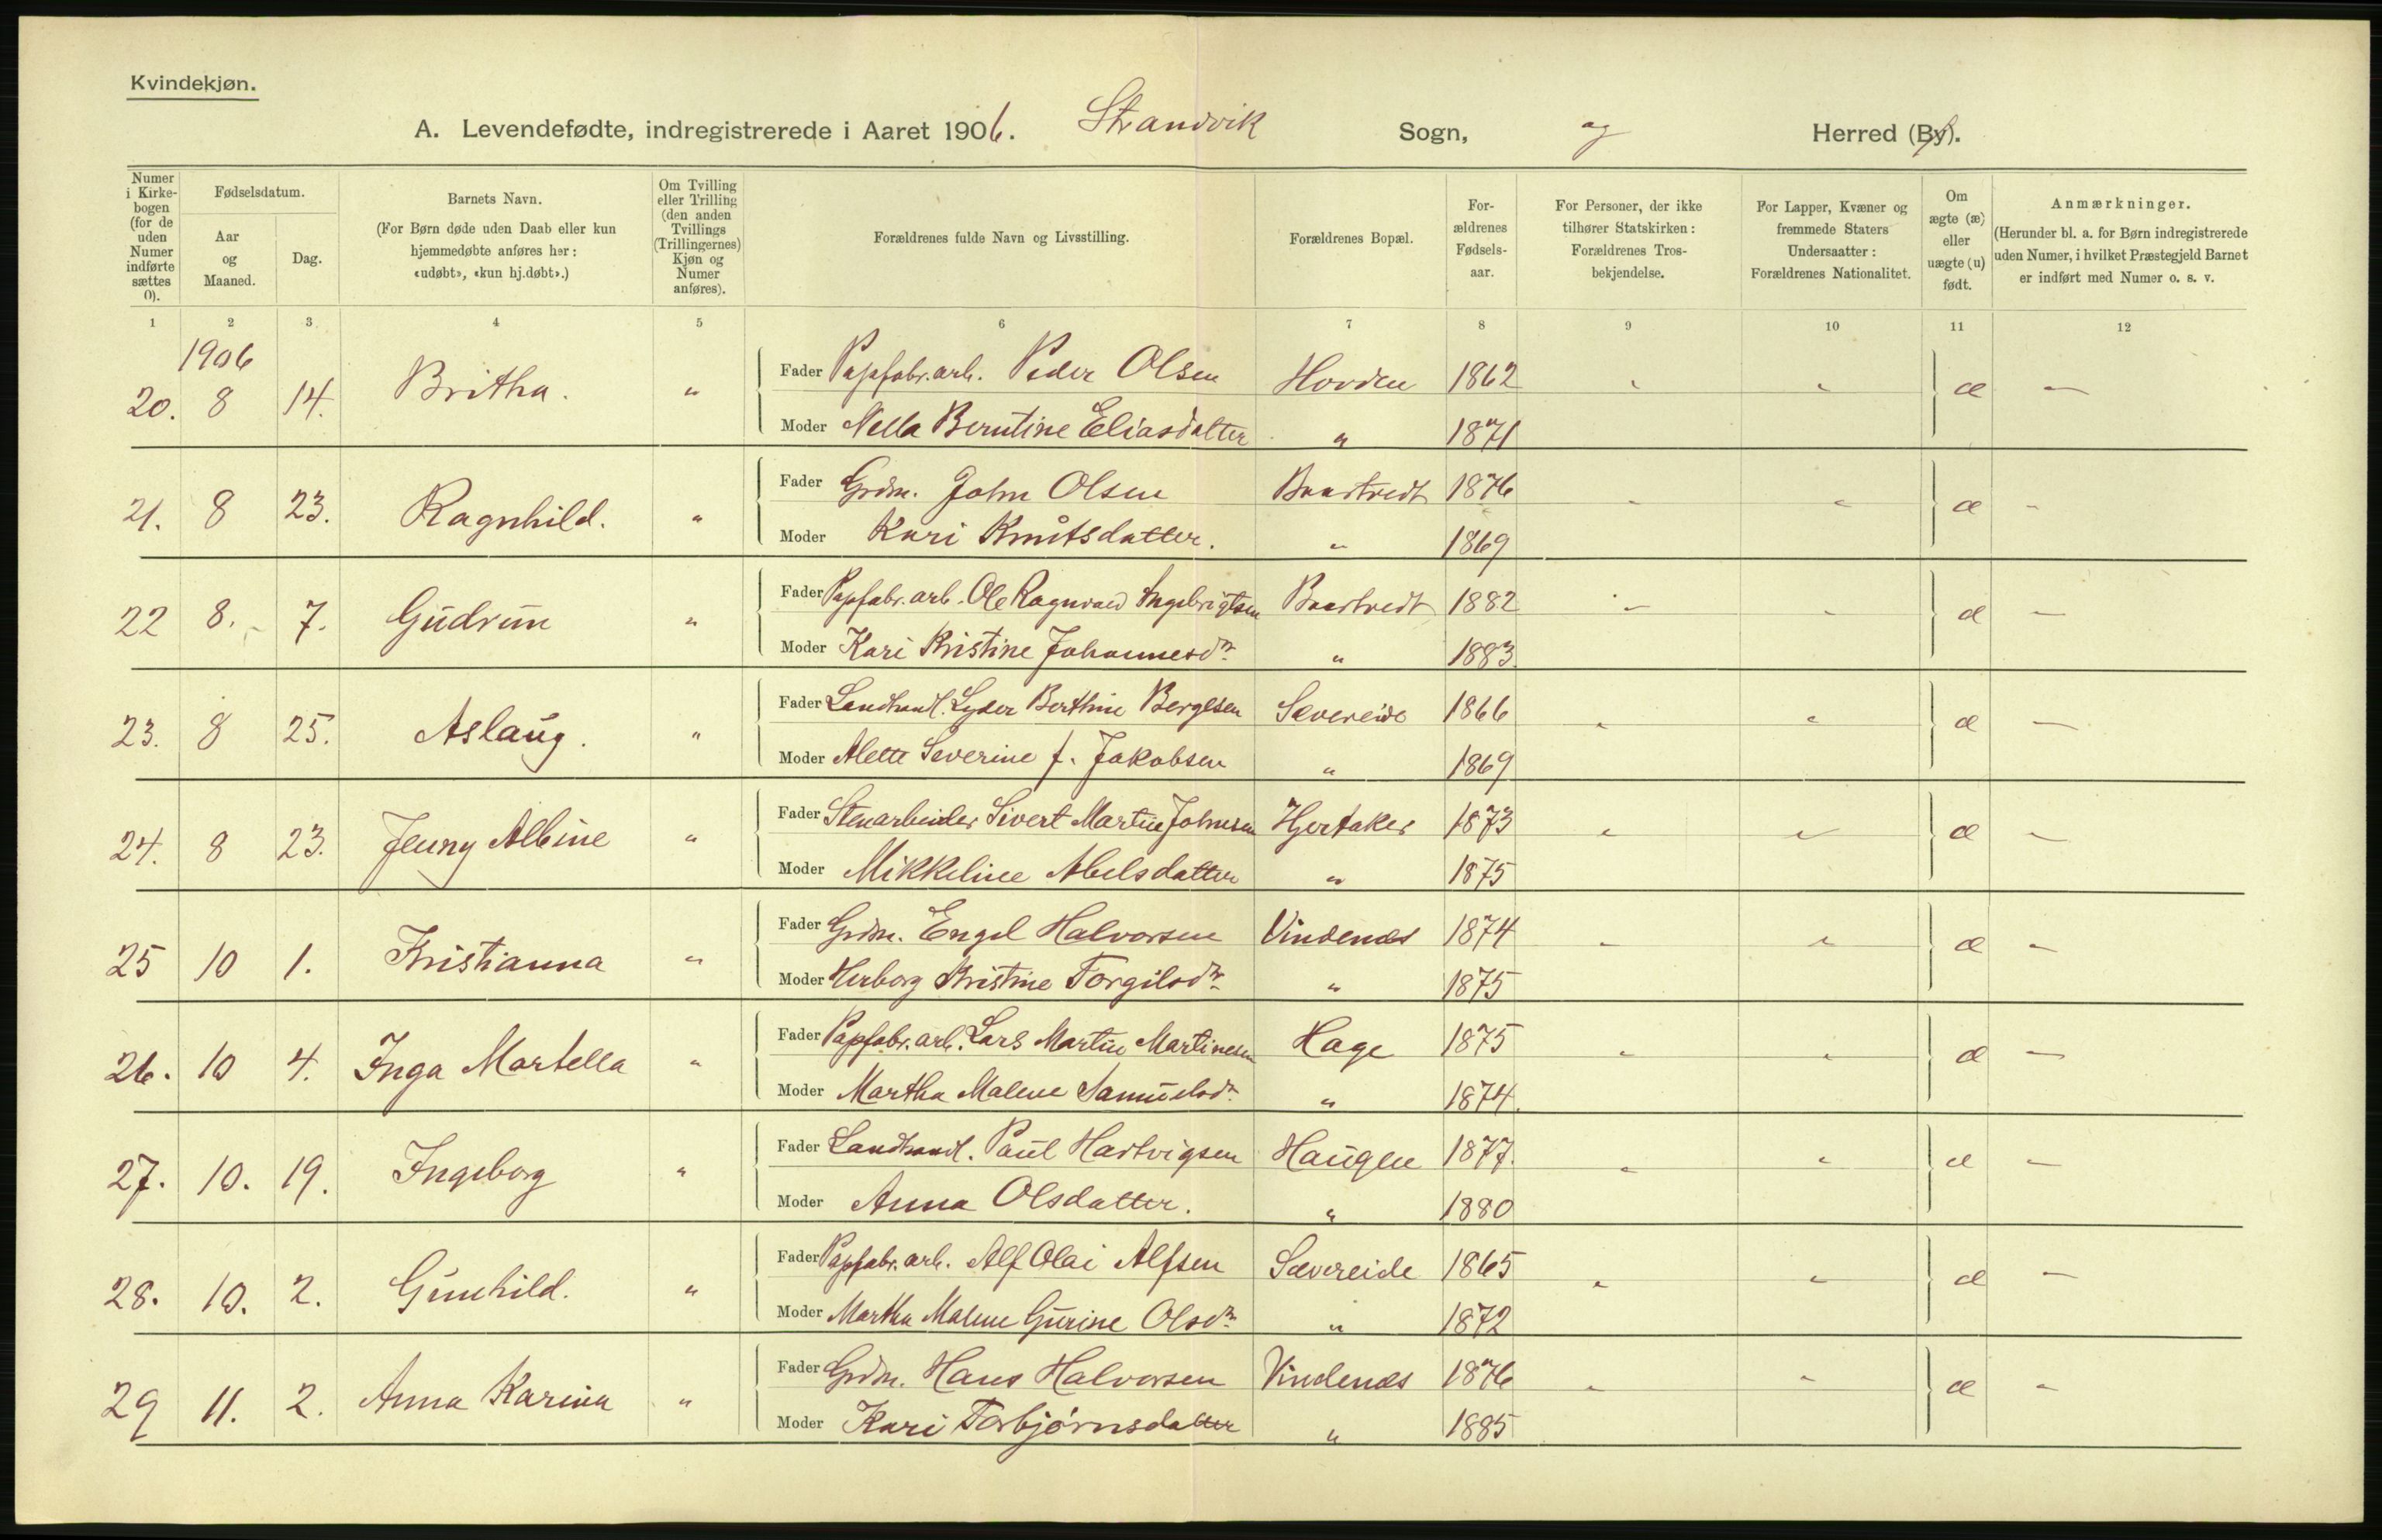 Kvindekjøn.
A. Levendefødte, indregistrerede i Aaret 1906. Strandvik Sogn, og Herred (By).
Numer i Kirke-bogen (for de uden Numer indførte sættes 0).
Fødselsdatum.
Aar og Maaned.
Dag.
Barnets Navn.
(For Børn døde uden Daab eller kun hjemmedøbte anføres her: «udøbt», «kun hj.døbt».)
Om Tvilling eller Trilling (den anden Tvillings (Trillingernes) Kjøn og Numer anføres).
Forældrenes fulde Navn og Livsstilling.
Forældrenes Bopæl.
For-ældrenes Fødsels-aar.
For Personer, der ikke tilhører Statskirken: Forældrenes Tros-bekjendelse.
For Lapper, Kvæner og fremmede Staters Undersaatter: Forældrenes Nationalitet.
Om ægte (æ) eller uægte (u) født.
Anmærkninger.
(Herunder bl. a. for Børn indregistrerede uden Numer, i hvilket Præstegjeld Barnet er indført med Numer o. s. v.
1 2 3 4 5 6 7 8 9 10 11 12
1906
20. 8 14. Britha. " Fader Papfabr.arb. Peder Olsen Hovden 1862 " " æ —
Moder Nella Berntine Eliasdatter " 1871
21. 8 23. Ragnhild. " Fader Grdm. John Olsen 1876 " " æ -
Moder Kari Knutsdatter. " 1869
22 8. 7. Gudrun " Fader Papfabr.arb. Ole Ragnvald Ingebrigtsen 1882 " " æ —
Moder Kari Kristine Johannesdr. " 1883
23. 8 25. Aslaug. " Fader Landhandl. Lyder Berthin Bergesen Sævereide 1866 " " æ —
Moder Alette Severine f. Jakobsen " 1869
24. 8 23. Jenny Albine " Fader Stenarbeider Sivert Martin Johnsen Hjertaker 1873 " " æ -
Moder Mikkeline Abelsdatter " 1875
25 10 1. Kristianna " Fader Grdm. Engel Halvorsen Vindenæs 1874 " " æ -
Moder Herborg Kristine Torgilsdr. " 1875
26. 10 4. Inga Martella " Fader Papfabr.arb. Lars Martin Martinesen Hage 1875 " " æ —
Moder Martha Malene Samuelsdr. " 1874.
27. 10. 19. Ingeborg " Fader Landhandl. Paul Hartvigsen Haugen 1877. " " æ —
Moder Anna Olsdatter. " 1880
28. 10. 2. Gunhild. " Fader Papfabr.arb. Alf Olai Alfsen Sævereide 1865 " " æ —
Moder Martha Malene Gurine Olsdr. " 1872
29 11. 2. Anna Karina " Fader Grdm. Hans Halvorsen Vindenæs 1876 " " æ -
Moder Kari Torbjørnsdatter " 1885